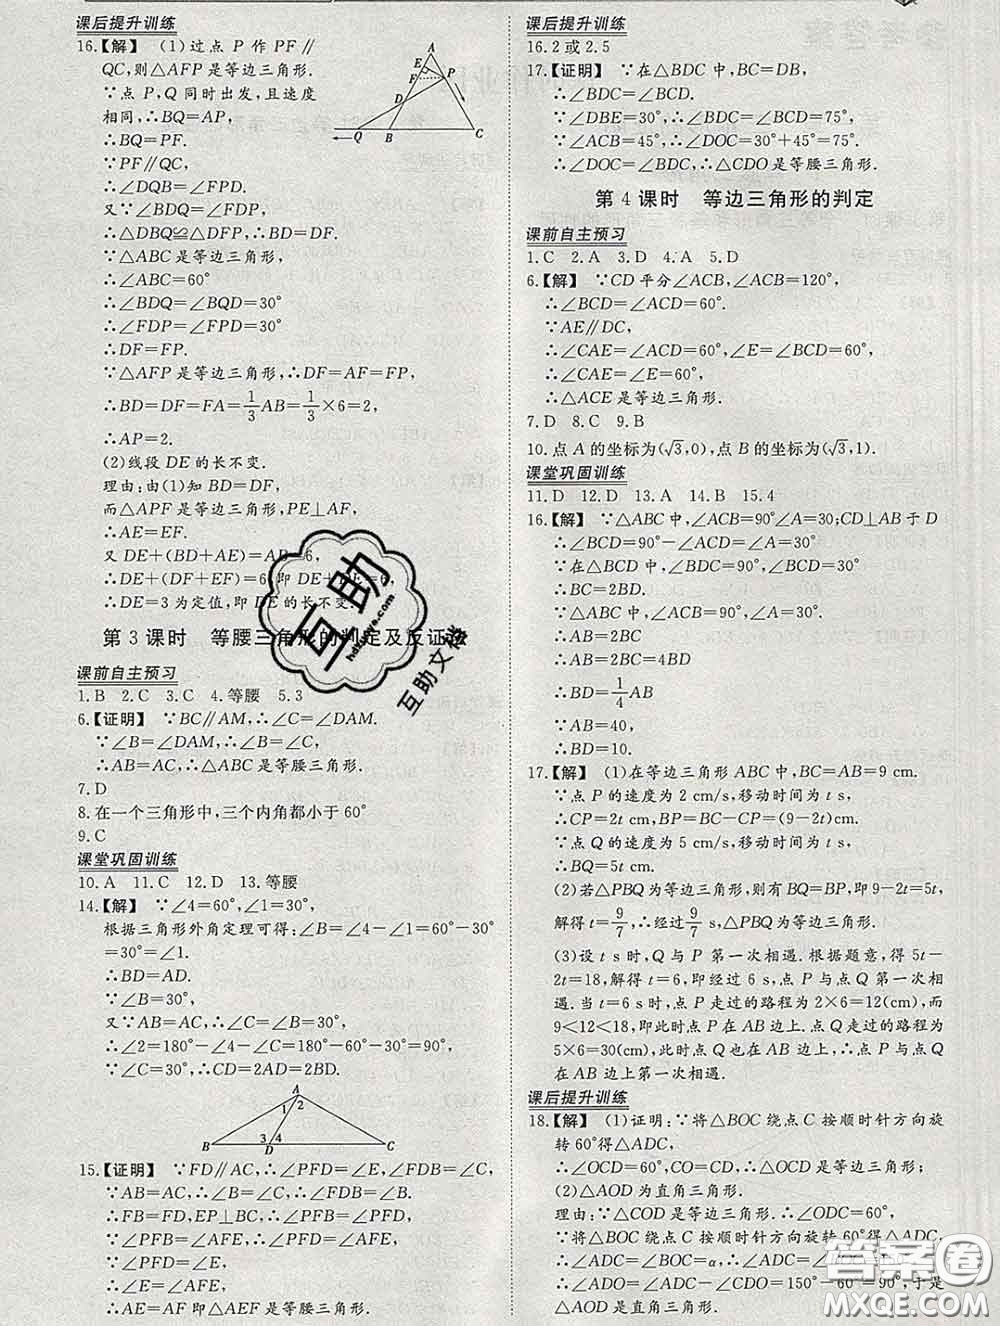 课后提升训练
16.【解】 (1)过点 P 作 PF∥
QC,则△AFP是等边三角形.
∵点 P,Q 同时出发,且速度
相同,∴BQ=AP,
∴BQ=PF.
∵PF∥QC,
∴∠DQB=∠FPD.
又∵∠BDQ=∠FDP,
∴△DBQ≌△DFP,∴BD=DF.
∵△ABC是等边三角形,
∴∠ABC=60°
∴∠BDQ=∠BQD=30°
∴∠FDP=∠FPD=30°
∴DF=FP.
∵△AFP是等边三角形,∴DF=AF=FP,
∴BD=DF=FA=1/3AB=1/3×6=2,
∴AP=2.
(2)线段 DE 的长不变.
理由:由(1)知 BD=DF,
而△APF 是等边三角形,PE⊥AF,
∴AE=EF.
又 DE+(BD+AE)=AB=6,
∴DE+(DF+EF)=6,即 DE+DE=6,
∴DE=3为定值,即 DE 的长不变.
第 3 课时 等腰三角形的判定及反证
课前自主预习
1.B 2.C 3.C 4.等腰 5.3
6.【证明】 ∵BC∥AM,∴∠C=∠DAM.
∵∠B=∠DAM,∴∠B=∠C,
∴AB=AC,∴△ABC是等腰三角形.
7.D
8.在一个三角形中,三个内角都小于60°
9.C
课堂巩固训练
10.A 11.C 12.D 13.等腰
14.【解】 ∵∠4=60°,∠1=30°,
根据三角形外角定理可得:∠B=∠4-∠1=60°-30°
=30°=∠1.
∴BD=AD.
∵∠B=30°,
又∵AB=AC,∴∠C=∠B=30°,
∴∠2=180°-∠4-∠C=180°-60°-30°=90°,
∵∠C=30°,∴CD=2AD=2BD.
A
1 2
3 4
B D C
15.【证明】 ∵FD∥AC,∴∠PFD=∠E,∠FDB=∠C,
∵AB=AC,∴∠B=∠C,∴∠FDB=∠B.
∴FB=FD,EP⊥BC,∴∠PFB=∠PFD,
∵∠PFB=∠AFE,∴∠PFD=∠AFE,
∴∠E=∠AFE,
∴AE=AF 即△AFE 是等腰三角形.
课后提升训练
16.2或2.5
17.【证明】 ∵在△BDC中,BC=DB,
∴∠BDC=∠BCD.
∵∠DBE=30°,∴∠BDC=∠BCD=75°,
∵∠ACB=45°,∴∠DOC=30°+45°=75°.
∴∠DOC=∠BDC,∴△CDO是等腰三角形.
第 4 课时 等边三角形的判定
课前自主预习
1.C 2.A 3.D 4.A 5.D
6.【解】 ∵CD平分∠ACB,∠ACB=120°,
∴∠BCD=∠ACD=60°.
∵AE∥DC,
∴∠CAE=∠ACD=60°,∠E=∠BCD=60°,
∴∠CAE=∠E=60°,
∴△ACE是等边三角形.
7.D 8.C 9.B
10.点 A 的坐标为(√3,0),点 B 的坐标为(√3,1).
课堂巩固训练
11.D 12.D 13.A 14.B 15.4
16.【解】 ∵△ABC中,∠ACB=90°∠A=30;CD⊥AB于D
∴∠BCD=90°-∠ACD=30°
∵在△BCD中,∠BDC=90°,∠BCD=30°
∴BC=2BD.
∵△ABC中,∠ACB=90°,∠A=30°
∴AB=2BC
∴AB=2BC=4BD
∴BD=1/4AB
∵AB=40,
∴BD=10.
17.【解】 (1)在等边三角形 ABC中,BC=AB=9 cm.
∵点 P 的速度为 2 cm/s,移动时间为 t s,
∴CP=2t cm,BP=BC-CP=(9-2t)cm.
∵点 Q 的速度为 5 cm/s,移动时间为 t s,
∴BQ=5t cm.
(2)若△PBQ为等边三角形,则有BQ=BP,即9-2t=5t,
解得t=9/7,∴经过9/7 s,△PBQ为等边三角形.
(3)设 t s时,Q 与 P 第一次相遇.根据题意,得 5t
2t=18,解得 t=6,即经过 6 s,点 P 与点 Q 第一次相
遇.当 t=6 s时,点 P 走过的路程为 2×6=12(cm),而
9<12<18,即此时点 P 在 AB 边上.点 Q 走过的路程为
5×6=30(cm),此时点 Q 也在 AB 边上,∴点 P 与点 Q
在 AB 边上第一次相遇.
课后提升训练
18.【解】 (1)证明:∵将△BOC 绕点 C 按顺时针方向旋
转60°得△ADC,
∴∠OCD=60°,CO=CD,∴△OCD是等边三角形;
(2)△AOD为直角三角形.
理由:∵△COD是等边三角形.∴∠ODC=60°,
∵将△BOC绕点C按顺时针方向旋转60°得△ADC,
∴∠ADC=∠BOC=α,∴∠ADC=∠BOC=150°,
∴∠ADO=∠ADC-∠CDO=150°-60°=90°,于是
△AOD是直角三角形.
互助
hdzuoye.com
互助文档
答案圈
MXQE.COM